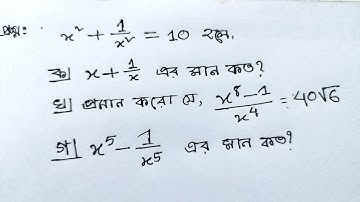 প্রশ্ন: x² + 1/x² = 10 হলে,
ক) x + 1/x এর মান কত?
খ) প্রমান করো যে, (x⁸ - 1)/x⁴ = 40√6
গ) x⁵ - 1/x⁵ এর মান কত?